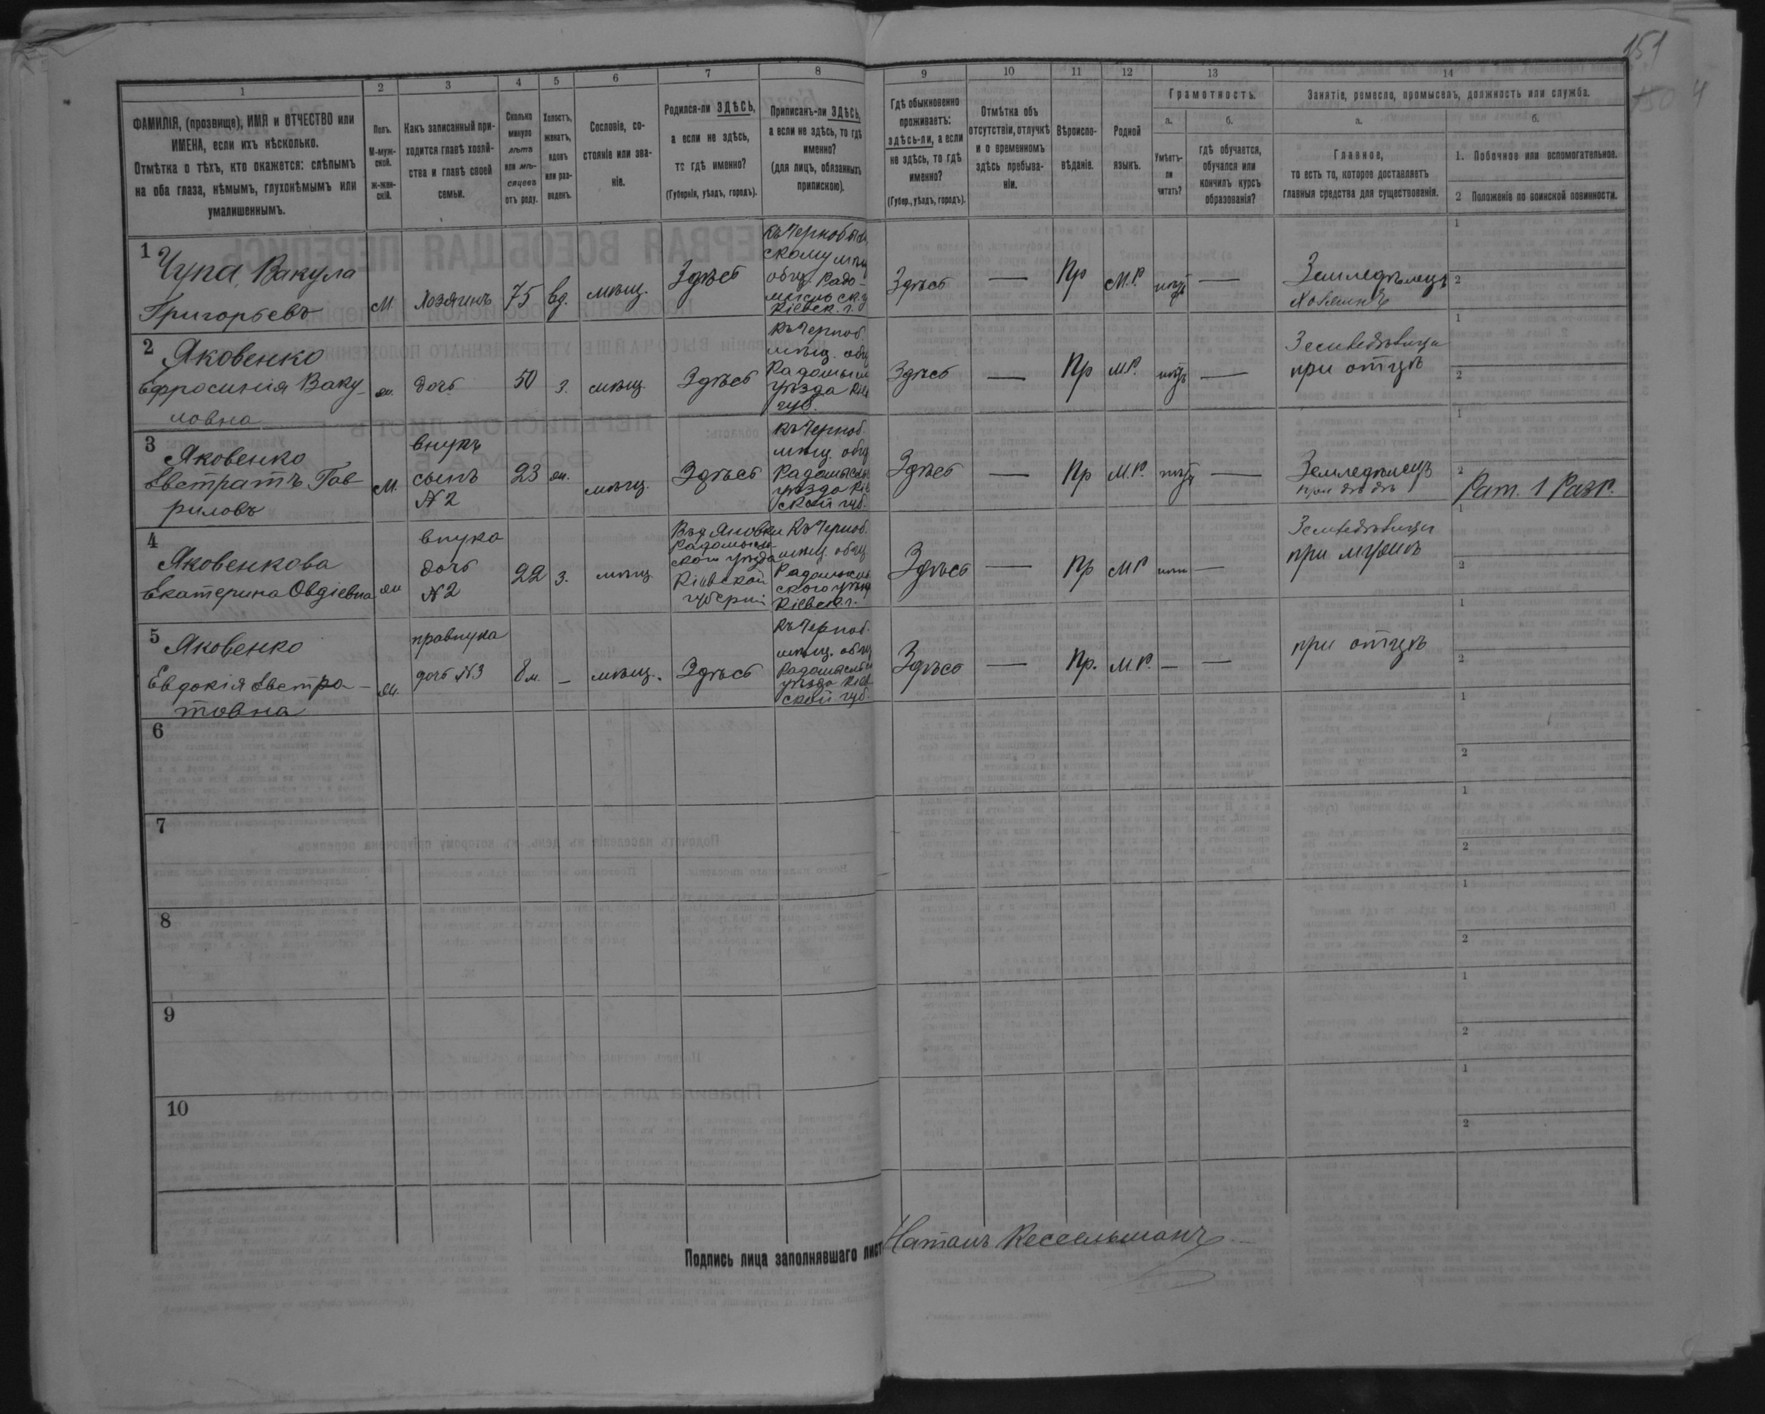 151
150 4
1 2 3 4 5 6 7 8 9 10 11 12 13 14
ФАМИЛІЯ, (прозвище), ИМЯ и ОТЧЕСТВО или
ИМЕНА, если ихъ нѣсколько.
Отмѣтка о тѣхъ, кто окажется: слѣпымъ
на оба глаза, нѣмымъ, глухонѣмымъ или
умалишеннымъ.
Полъ.
М-муж-
ской.
Ж-жен-
скій.
Какъ записанный при-
ходится главѣ хозяй-
ства и главѣ своей
семьи.
Сколько
минуло
лѣтъ
или мѣ-
сяцевъ
отъ роду.
Холостъ,
женатъ,
вдовъ
или раз-
веденъ.
Сословіе, со-
стояніе или зва-
ніе.
Родился-ли ЗДѢСЬ,
а если не здѣсь,
то гдѣ именно?
(Губернія, уѣздъ, городъ).
Приписанъ-ли ЗДѢСЬ,
а если не здѣсь, то гдѣ
именно?
(для лицъ, обязанныхъ
припискою).
Гдѣ обыкновенно
проживаетъ:
здѣсь-ли, а если
не здѣсь, то гдѣ
именно?
(Губер., уѣздъ, городъ).
Отмѣтка объ
отсутствіи, отлучкѣ
и о временномъ
здѣсь пребыва-
ніи.
Вѣроиспо-
вѣданіе.
Родной
языкъ.
Грамотность.
а.
Умѣетъ-
ли
читать?
б.
гдѣ обучается,
обучался или
кончилъ курсъ
образованія?
Занятіе, ремесло, промыселъ, должность или служба.
а.
Главное,
то есть то, которое доставляетъ
главныя средства для существованія.
б.
1. Побочное или вспомогательное.
2 Положеніе по воинской повинности.
1 Чупа Вакула
Григорьевъ
М
Хозяинъ
75
вд.
мѣщ.
Здѣсь
Къ Чернобыль
скому мѣщ
общ. Радо-
мысльск. у
Кіевск. г.
Здѣсь
—
Пр
М.Р.
—
Земледѣлецъ
Хозяинъ
1
2
2 Яковенко
Ефросинія Ваку-
ловна
ж.
дочь
50
з.
мѣщ
Здѣсь
Къ Черноб.
мѣщ. общ
Радомысл
уѣзда Кіе
губ.
Здѣсь
—
Пр
М.Р.
—
при отцѣ
1
2
3 Яковенко
Евстратъ Гав-
риловъ
М.
внукъ
сынъ
N 2
23
ж.
мѣщ.
Здѣсь
Къ Черноб.
мѣщ. общ
уѣзда Кіе
ской губ.
Здѣсь
—
Пр
М.Р.
—
Земледѣлецъ
при дѣдѣ
1
2
Рат. 1 Разр.
4 Яковенкова
Екатерина Овдіевна
ж
внука
дочь
N 2
22
з.
мѣщ
Радомысль-
ского уѣзда
Кіевской
губерніи
Къ Черноб.
мѣщ. общ.
Радомысль
ского уѣзд
Кіевск. г.
Здѣсь
—
Пр
М.Р.
—
при мужѣ
1
2
5 Яковенко
Евдокія Евстра-
товна
ж.
правнука
дочь N 3
8 м.
—
мѣщ.
Здѣсь
Къ Черноб.
мѣщ. общ
уѣзда Кіев
ской губ.
Здѣсь
—
Пр.
М.Р.
—
—
при отцѣ
1
2
6
1
2
7
1
2
8
1
2
9
1
2
10
1
2
Подпись лица заполнявшаго лист
Натанъ Кесельманъ